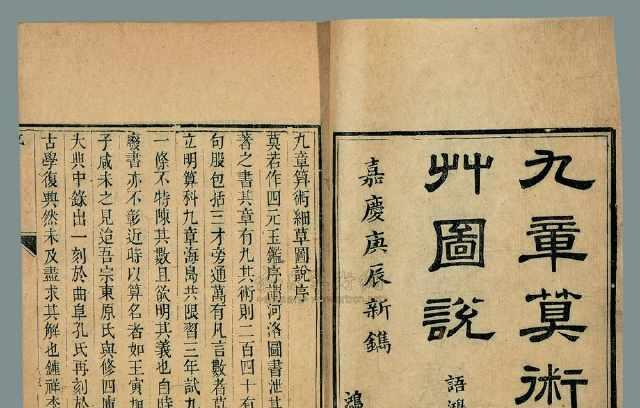 九章算術
艸圖說
語鴻
嘉慶庚辰新鐫
鴻
九章算術細草圖說序
莫若作四元玉鑑序謂河洛圖書泄其
著之書其章有九其術則二百四十有
句股包括三才旁通萬有凡言數者莫
立明算科九章海島共限習三年試九
一條不特陳其數且欲明其義也自時
廢書亦不彰近時以算名者如王寅旭
子咸未之見迨吾宗東原氏與修四庫
大典中錄出一刻於曲阜孔氏再刻於
古學復興然未及盡求其解也鍾祥李